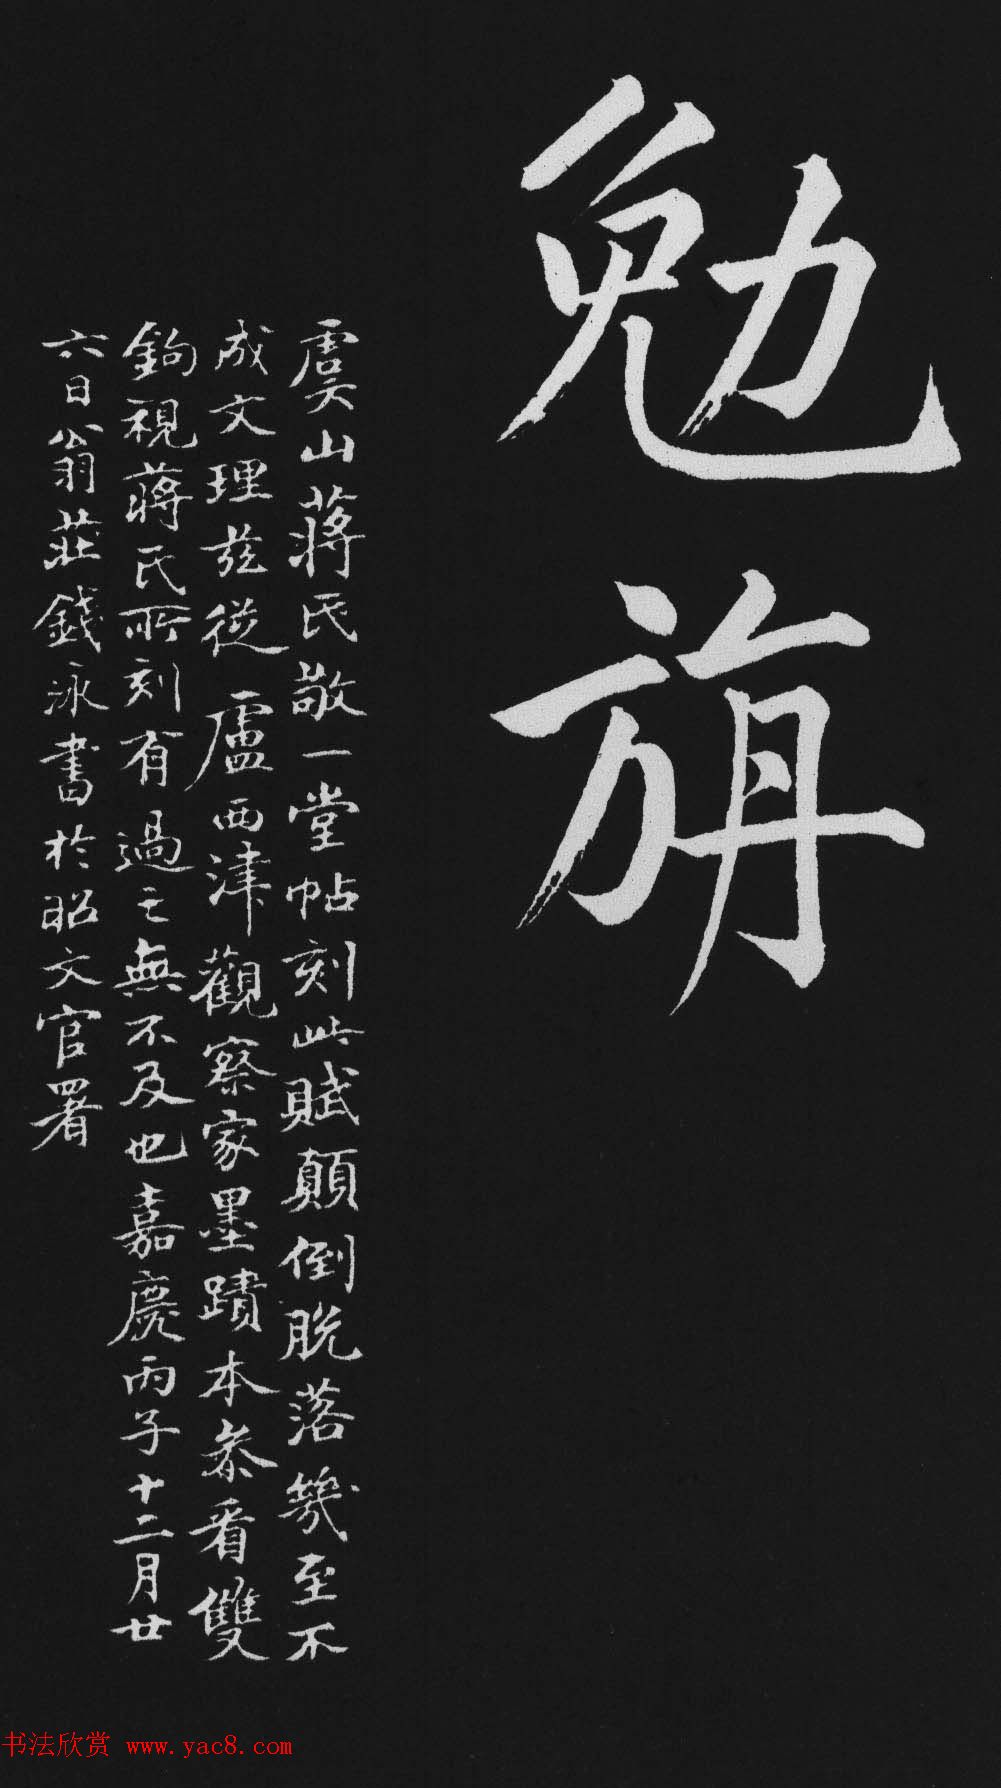 勉旃
虞山蔣氏敬一堂帖刻此賦顛倒脱落幾至不
成文理茲從盧西津觀察家墨蹟本叅看雙
鉤視蔣氏所刻有過之無不及也嘉慶丙子十二月廿
六日翁莊錢泳書於昭文官署
书法欣赏 www.yac8.com